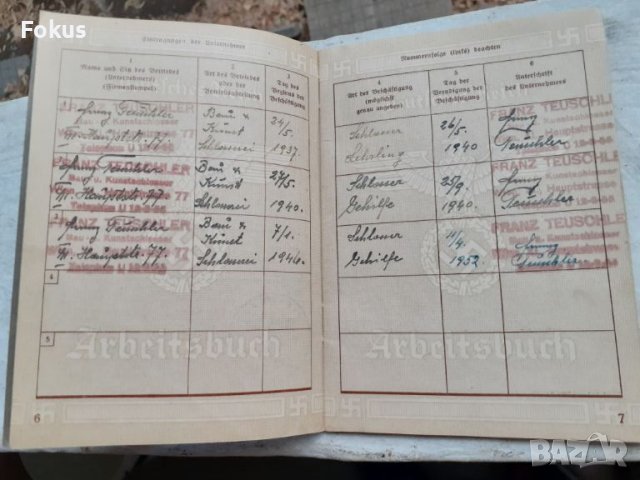 Fokus
Eintragungen der Unternehmer
1
Name und Sitz des Betriebes
(Unternehmers)
(Firmenstempel)
2
Art des Betriebes
oder der
Betriebsabteilung
3
Tag des
Beginns der
Beschäftigung
FRANZ TEUSCHLER
Bau- u. Kunstschlosser
III. Hauptstr. 77
Franz Teuschler
III. Hauptstr. 77.
Bau u
Kunst
Schlosserei
24/5.
1937.
Franz Teuschler
III. Hauptstr. 77.
Bau u
Kunst
Schlosserei
27/5.
1940.
Franz Teuschler
III. Hauptstr. 77.
Bau u
Kunst
Schlosserei
7/1.
1946.
4
5
Arbeitsbuch
6
Nummernfolge (links) beachten
4
Art der Beschäftigung
(möglichst
genau angeben)
5
Tag der
Beendigung der
Beschäftigung
6
Unterschrift
des Unternehmers
Schlosser
Lehrling
26/5.
1940
FRANZ TEUSCHLER
Franz
Teuschler
Schlosser
Gehilfe
25/9.
1940.
FRANZ TEUSCHLER
Franz
Teuschler
Schlosser
Gehilfe
11/4.
1952
FRANZ TEUSCHLER
Franz
Teuschler
Arbeitsbuch
7
BAZAR